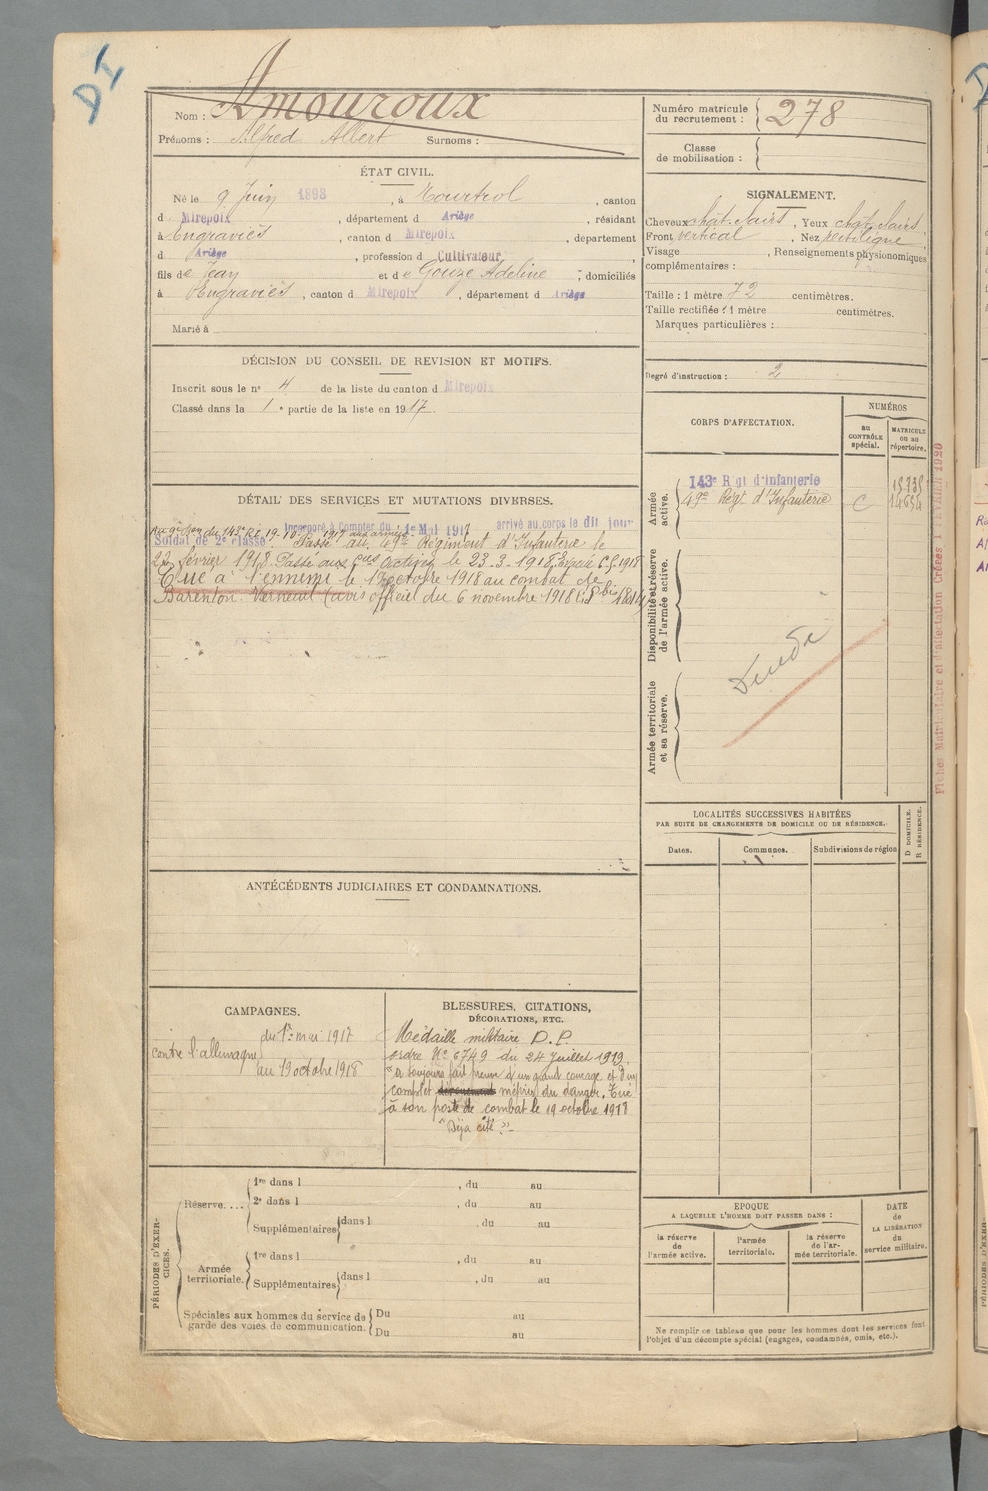 DI
Nom : Amouroux
Prénoms : Alfred Albert Surnoms :
Numéro matricule
du recrutement : 278
Classe
de mobilisation :
ÉTAT CIVIL.
Né le 9 Juin 1898, à Tourtrol, canton
d Mirepoix, département d Ariège, résidant
à Engraviès, canton d Mirepoix, département
d Ariège, profession d Cultivateur,
fils de Jean et de Gouze Adeline ; domiciliés
à Engraviès, canton d Mirepoix, département d Ariège
Marié à
SIGNALEMENT.
Cheveux chât. clairs, Yeux chât. clairs
Front vertical, Nez rectiligne
Visage , Renseignements physionomiques
complémentaires :
Taille : 1 mètre 72 centimètres.
Taille rectifiée : 1 mètre centimètres.
Marques particulières :
Degré d'instruction : 2
DÉCISION DU CONSEIL DE REVISION ET MOTIFS.
Inscrit sous le n° 4 de la liste du canton d Mirepoix
Classé dans la 1e partie de la liste en 1917.
CORPS D'AFFECTATION.
NUMÉROS
au
CONTRÔLE
spécial.
MATRICULE
ou au
répertoire.
Armée
active.
143e Rgt d'infanterie
49e Régt d'Infanterie C
Disponibilité et réserve
de l'armée active.
Armée territoriale
et sa réserve.
DÉTAIL DES SERVICES ET MUTATIONS DIVERSES.
Incorporé à Compter du 1e Mai 1917 arrivé au corps le dit jour
Soldat de 2e classe. Passé au 49e Régiment d'Infanterie le
22 février 1918. Passé aux armées le 23-3-1918
Tué à l'ennemi le octobre 1918 au combat de
Barenton Verneuil (avis officiel du 6 novembre 1918
Fiches Matriculaire et d'affectation Créées 1 FÉVRIER 1920
LOCALITÉS SUCCESSIVES HABITÉES
PAR SUITE DE CHANGEMENTS DE DOMICILE OU DE RÉSIDENCE.
D DOMICILE.
R RÉSIDENCE.
Dates.
Communes.
Subdivisions de région
ANTÉCÉDENTS JUDICIAIRES ET CONDAMNATIONS.
CAMPAGNES.
du 1er mai 1917
contre l'allemagne
au 19 octobre 1918
BLESSURES, CITATIONS,
DÉCORATIONS, ETC.
Médaille militaire D.P.
ordre N° 6749 du 24 Juillet 1919.
"a toujours fait preuve d'un grand courage et d'un
complet mépris du danger. Tué
à son poste de combat le 19 octobre 1918
"Déjà cité"
PÉRIODES D'EXER-
CICES.
Réserve....
1re dans l , du au
2e dans l , du au
Supplémentaires dans l , du au
Armée
territoriale.
1re dans l , du au
Supplémentaires dans l , du au
Spéciales aux hommes du service de
garde des voies de communication.
Du au
Du au
EPOQUE
A LAQUELLE L'HOMME DOIT PASSER DANS :
la réserve
de
l'armée active.
l'armée
territoriale.
la réserve
de l'ar-
mée territoriale.
DATE
de
LA LIBÉRATION
du
service militaire.
Ne remplir ce tableau que pour les hommes dont les services font
l'objet d'un décompte spécial (engagés, condamnés, omis, etc.).